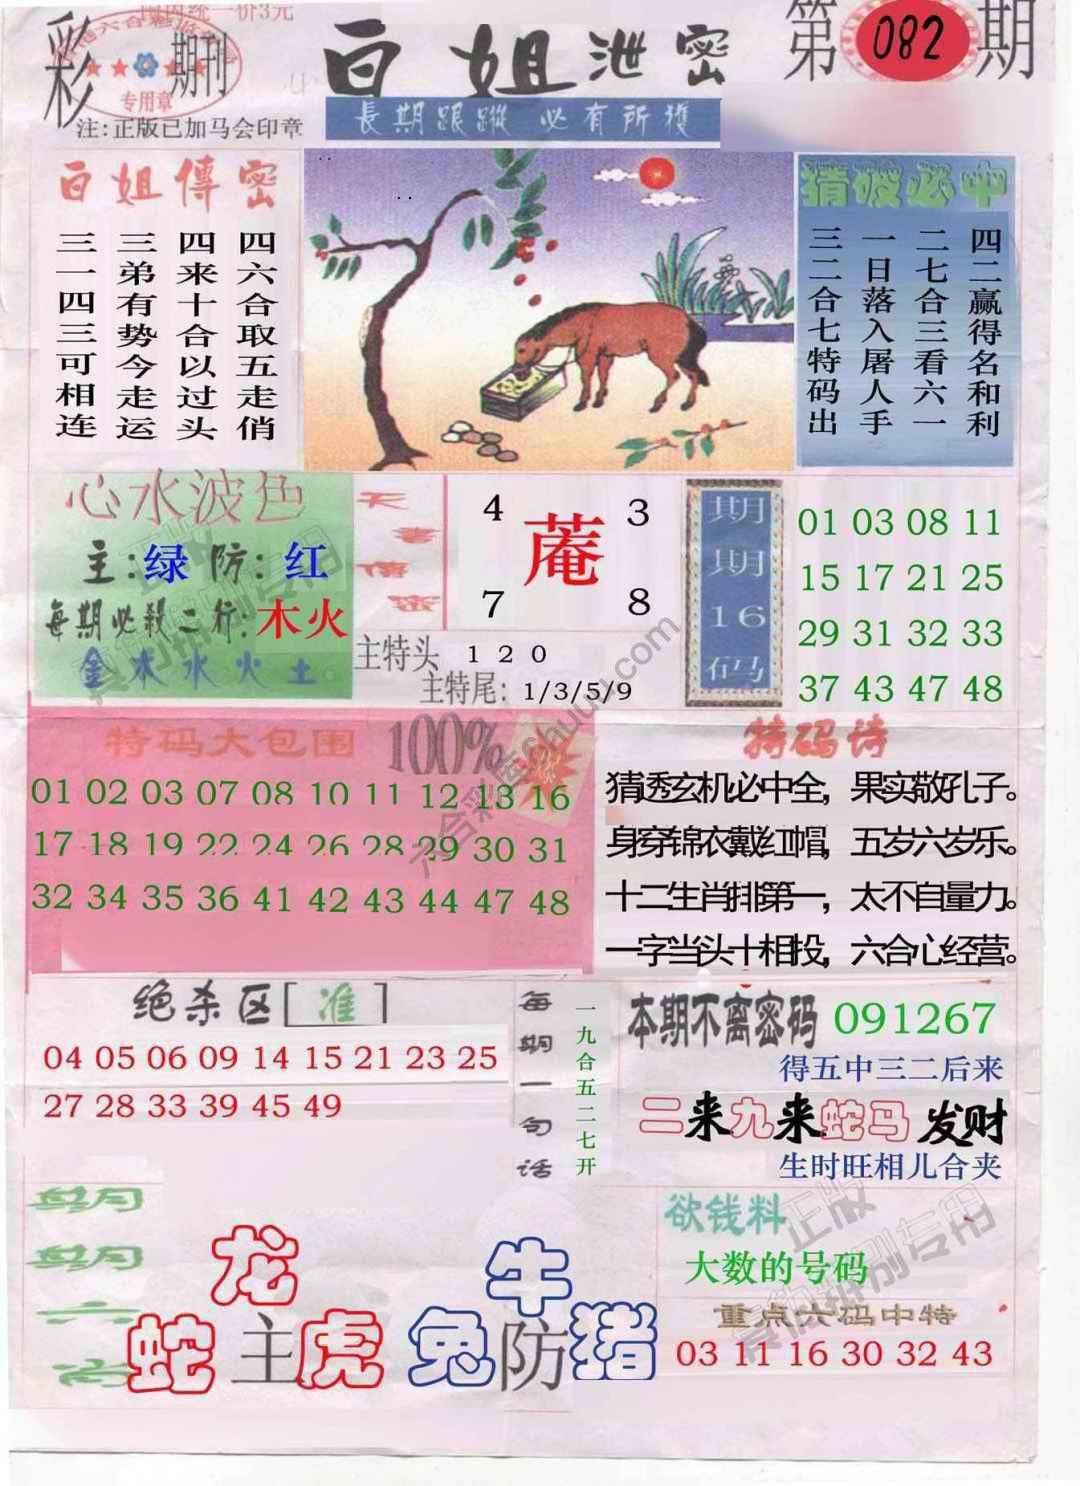 国内统一价3元
彩 期刊
专用章
注:正版已加马会印章
白姐 泄密
長期跟蹤 必有所獲
第 082 期
白姐傳密
四六合取五走俏
四来十合以过头
三弟有势今走运
三一四三可相连
猜破必中
四二赢得名和利
二七合三看六一
一日落入屠人手
三二合七特码出
心水波色
主:绿 防:红
每期必殺二行:木火
金木水火土
天書傳密
4 3
菴
7 8
主特头 1 2 0
主特尾: 1/3/5/9
期期16码
01 03 08 11
15 17 21 25
29 31 32 33
37 43 47 48
特码大包围
100%
01 02 03 07 08 10 11 12 13 16
17 18 19 22 24 26 28 29 30 31
32 34 35 36 41 42 43 44 47 48
特码诗
猜透玄机必中全，果实敬孔子。
身穿锦衣戴红帽，五岁六岁乐。
十二生肖排第一，太不自量力。
一字当头十相投，六合心经营。
绝杀区[准]
04 05 06 09 14 15 21 23 25
27 28 33 39 45 49
每期一句话
一九合五二七开
本期不离密码 091267
得五中三二后来
二来九来蛇马 发财
生时旺相儿合夹
每期
每期
六
肖
龙
蛇 主 虎
牛
兔 防 猪
欲钱料
大数的号码
重点六码中特
03 11 16 30 32 43